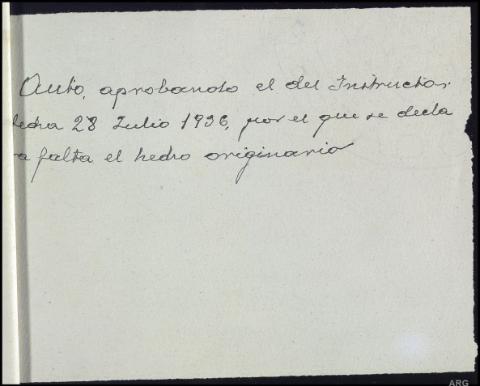 Auto, aprobando el del Instructor
fecha 28 Julio 1936, por el que se decla
a falta el hecho originario
ARG